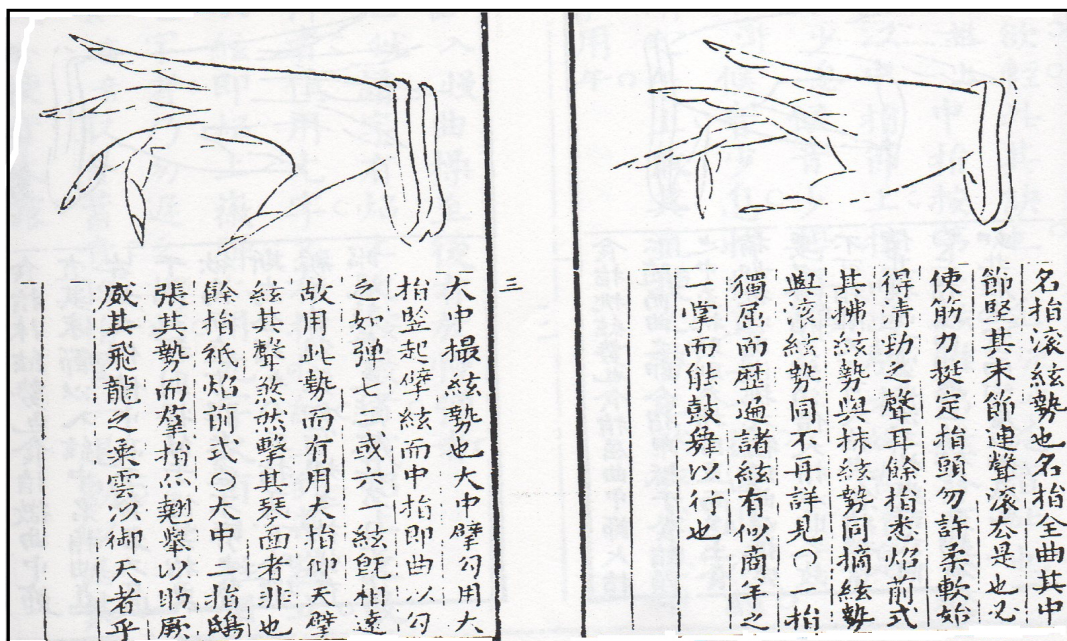 名指滚絃勢也名指全曲其中
節堅其末節連聲滚去是也必
使筋力挺定指頭勿許柔軟始
得清勁之聲耳餘指悉焰前式
其拂絃勢與抹絃勢同摘絃勢
與滚絃勢同不再詳見〇一指
獨屈而歷遍諸絃有似商羊之
一掌而能鼓舞以行也
三
大中撮絃勢也大中擘勾用大
指竪起擘絃而中指即曲以勾
之如弹七二或六一絃既相遠
故用此勢而有用大指仰天擘
絃其聲煞然擊其琴面者非也
餘指衹焰前式〇大中二指鴟
張其勢而羣指亦翹舉以助厥
威其飛龍之乗雲以御天者乎